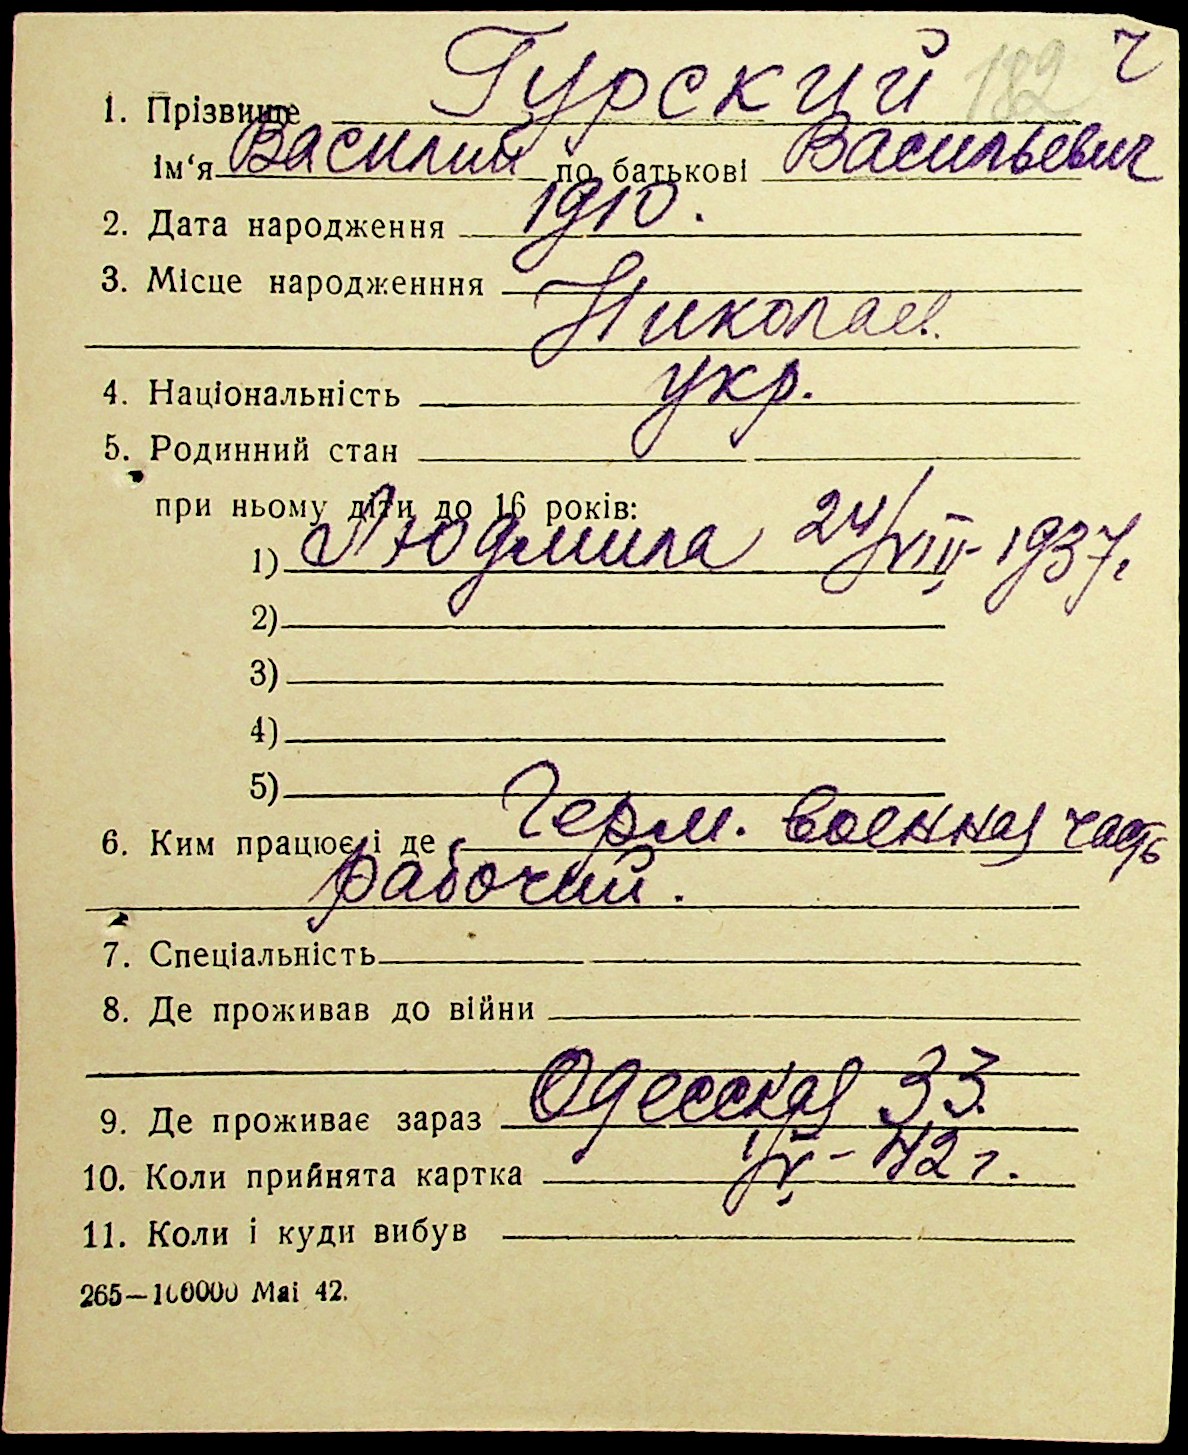 182 ч
1. Прізвище Гурский
Ім'я Василий по батькові Васильевич
2. Дата народження 1910.
3. Місце народженння
Николаев.
4. Національність укр.
5. Родинний стан
при ньому діти до 16 років:
1) Людмила 24/VIII-1937г.
2)
3)
4)
5)
6. Ким працює і де Герм. военная часть
рабочий.
7. Спеціальність
8. Де проживав до війни
9. Де проживає зараз Одесская 33.
10. Коли прийнята картка 1/V-42 г.
11. Коли і куди вибув
265—100000 Маі 42.